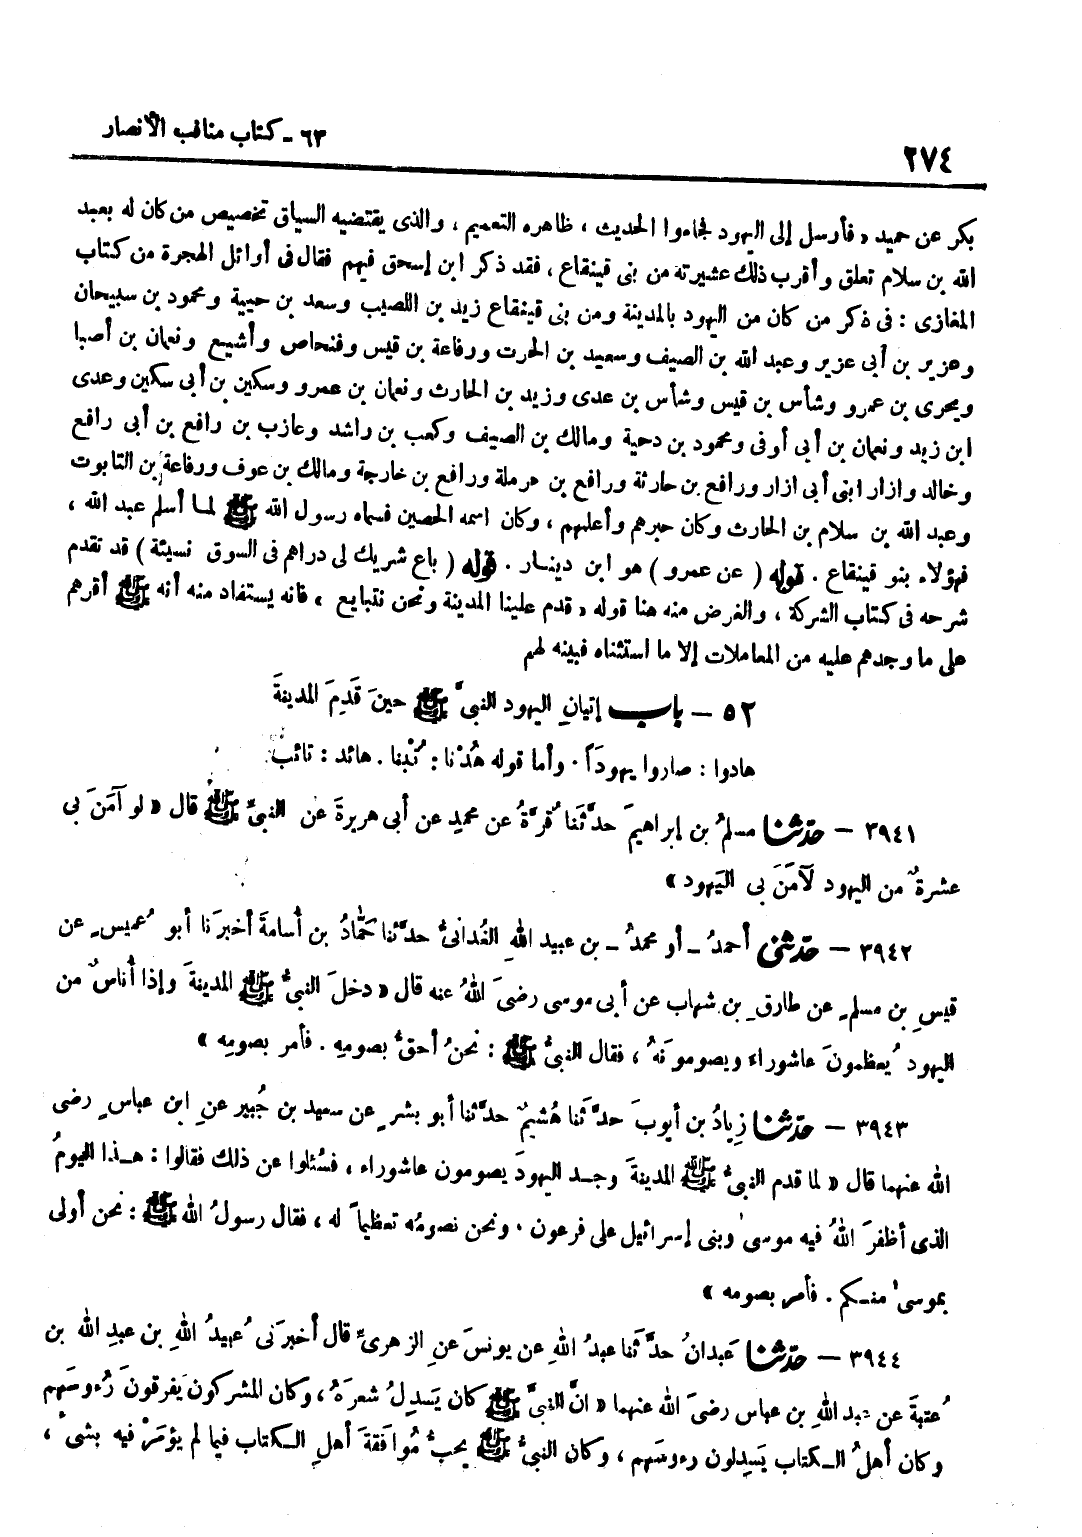 ٦٣ - كتاب مناقب الأنصار
٢٧٤
بكر عن حميد « فأرسل إلى اليهود فجاءوا الحديث ، ظاهره التعميم ، والذى يقتضيه السياق تخصيص من كان له بعبد
الله بن سلام تعلق وأقرب ذلك عشيرته من بنى قينقاع ، فقد ذكر ابن إسحق فيهم فقال فى أوائل الهجرة من كتاب
المغازى : فى ذكر من كان من اليهود بالمدينة ومن بنى قينقاع زيد بن اللصيب وسعد بن حيية ومحمود بن سبيحان
وعزير بن أبى عزير وعبد الله بن الصيف وسعيد بن الحرت ورفاعة بن قيس وفنحاص وأشيع ونعمان بن أصبا
ويحرى بن عمرو وشأس بن قيس وشأس بن عدى وزيد بن الحارث ونعمان بن عمرو وسكين بن أبى سكين وعدى
ابن زيد ونعمان بن أبى أوفى ومحمود بن دحية ومالك بن الصيف وكعب بن راشد وعازب بن رافع بن أبى رافع
وخالد وازار ابنى أبى ازار ورافع بن حارثة ورافع بن حرملة ورافع بن خارجة ومالك بن عوف ورفاعة بن التابوت
وعبد الله بن سلام بن الحارث وكان حبرهم وأعلمهم ، وكان اسمه الحصين فسماه رسول الله ﷺ لما أسلم عبد الله ،
فهؤلاء بنو قينقاع . قوله ( عن عمرو ) هو ابن دينار . قوله ( باع شريك لى دراهم فى السوق نسيئة ) قد تقدم
شرحه فى كتاب الشركة ، والغرض منه هنا قوله « قدم علينا المدينة ونحن نتبايع ، فانه يستفاد منه أنه ﷺ أقرهم
على ما وجدهم عليه من المعاملات إلا ما استثناه فبينه لهم
٥٢ - باب إتيانِ اليهود النبىَّ ﷺ حينَ قَدِمَ المدينةَ
هادوا : صاروا يهوداً . وأما قوله هُدْنا : تُبْنا . هائد : تائب
٣٩٤١ - حدّثنا مسلمُ بن إبراهيمَ حدَّثنا قُرَّةُ عن محمدٍ عن أبى هريرةَ عن النبىِّ ﷺ قال « لو آمَنَ بى
عشرةٌ من اليهود لَآمَنَ بى اليَهود »
٣٩٤٢ - حدّثنى أحمدُ - أو محمدُ - بن عبيد اللهِ الغُدانىُّ حدَّثنا حَمّادُ بن أُسامةَ أخبرَنا أبو عُميسٍ عن
قيسِ بن مسلمٍ عن طارقِ بن شهاب عن أبى موسى رضىَ اللهُ عنه قال « دخلَ النبىُّ ﷺ المدينةَ وإذا أُناسٌ من
اليهود يُعظمونَ عاشوراء ويصومونَهُ ، فقال النبىُّ ﷺ : نحنُ أحقُّ بصومِه . فأمر بصومِه »
٣٩٤٣ - حدّثنا زِيادُ بن أيوبَ حدَّثَنا هُشيمٌ حدَّثنا أبو بشرٍ عن سعيد بن جُبير عنِ ابن عباسٍ رضى
الله عنهما قال « لما قدم النبىُّ ﷺ المدينةَ وجد اليهودَ يصومون عاشوراء ، فسُئلوا عن ذلك فقالوا : هذا اليومُ
الذى أظفرَ اللهُ فيه موسى وبنى إسرائيل على فرعون . ونحن نصومُه تعظيماً له ، فقال رسولُ الله ﷺ : نحن أولى
بموسى منكم . فأمر بصومه »
٣٩٤٤ - حدّثنا عَبدانُ حدَّثَنا عبدُ اللهِ عن يونسَ عنِ الزهرىِّ قال أخبرَنى عُبيدُ اللهِ بن عبدِ الله بن
عُتبةَ عن عبد اللهِ بن عباس رضىَ الله عنهما « انَّ النبىَّ ﷺ كان يَسدِلُ شعرَهُ ، وكان المشركون يَفرقونَ رُءوسَهم
وكان أهلُ الكتاب يَسدِلون رءوسَهم ، وكان النبىُّ ﷺ يحبُّ مُوافقةَ أهلِ الكتاب فيما لم يؤمَرْ فيه بشىء ،